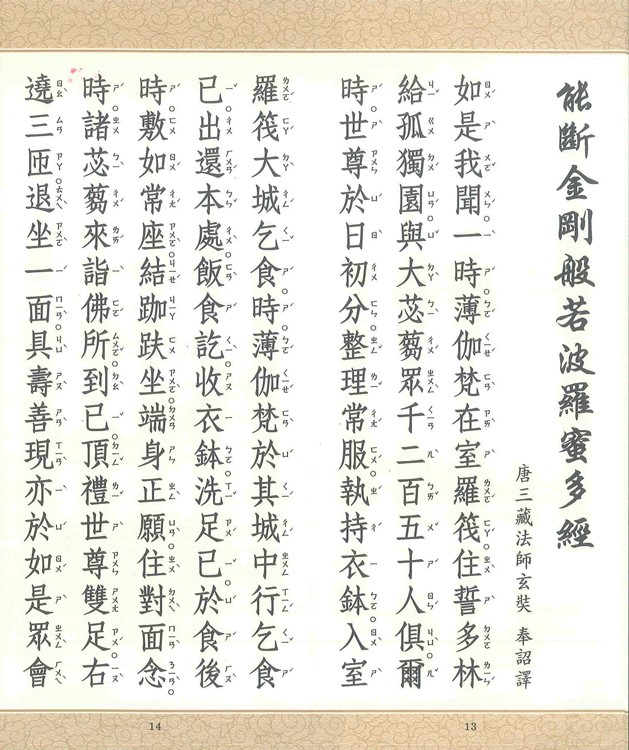 能斷金剛般若波羅蜜多經
唐三藏法師玄奘 奉詔譯
如是我聞一時薄伽梵在室羅筏住誓多林
給孤獨園與大苾蒭眾千二百五十人俱爾
時世尊於日初分整理常服執持衣鉢入室
13
羅筏大城乞食時薄伽梵於其城中行乞食
已出還本處飯食訖收衣鉢洗足已於食後
時敷如常座結跏趺坐端身正願住對面念
時諸苾蒭來詣佛所到已頂禮世尊雙足右
遶三匝退坐一面具壽善現亦於如是眾會
14